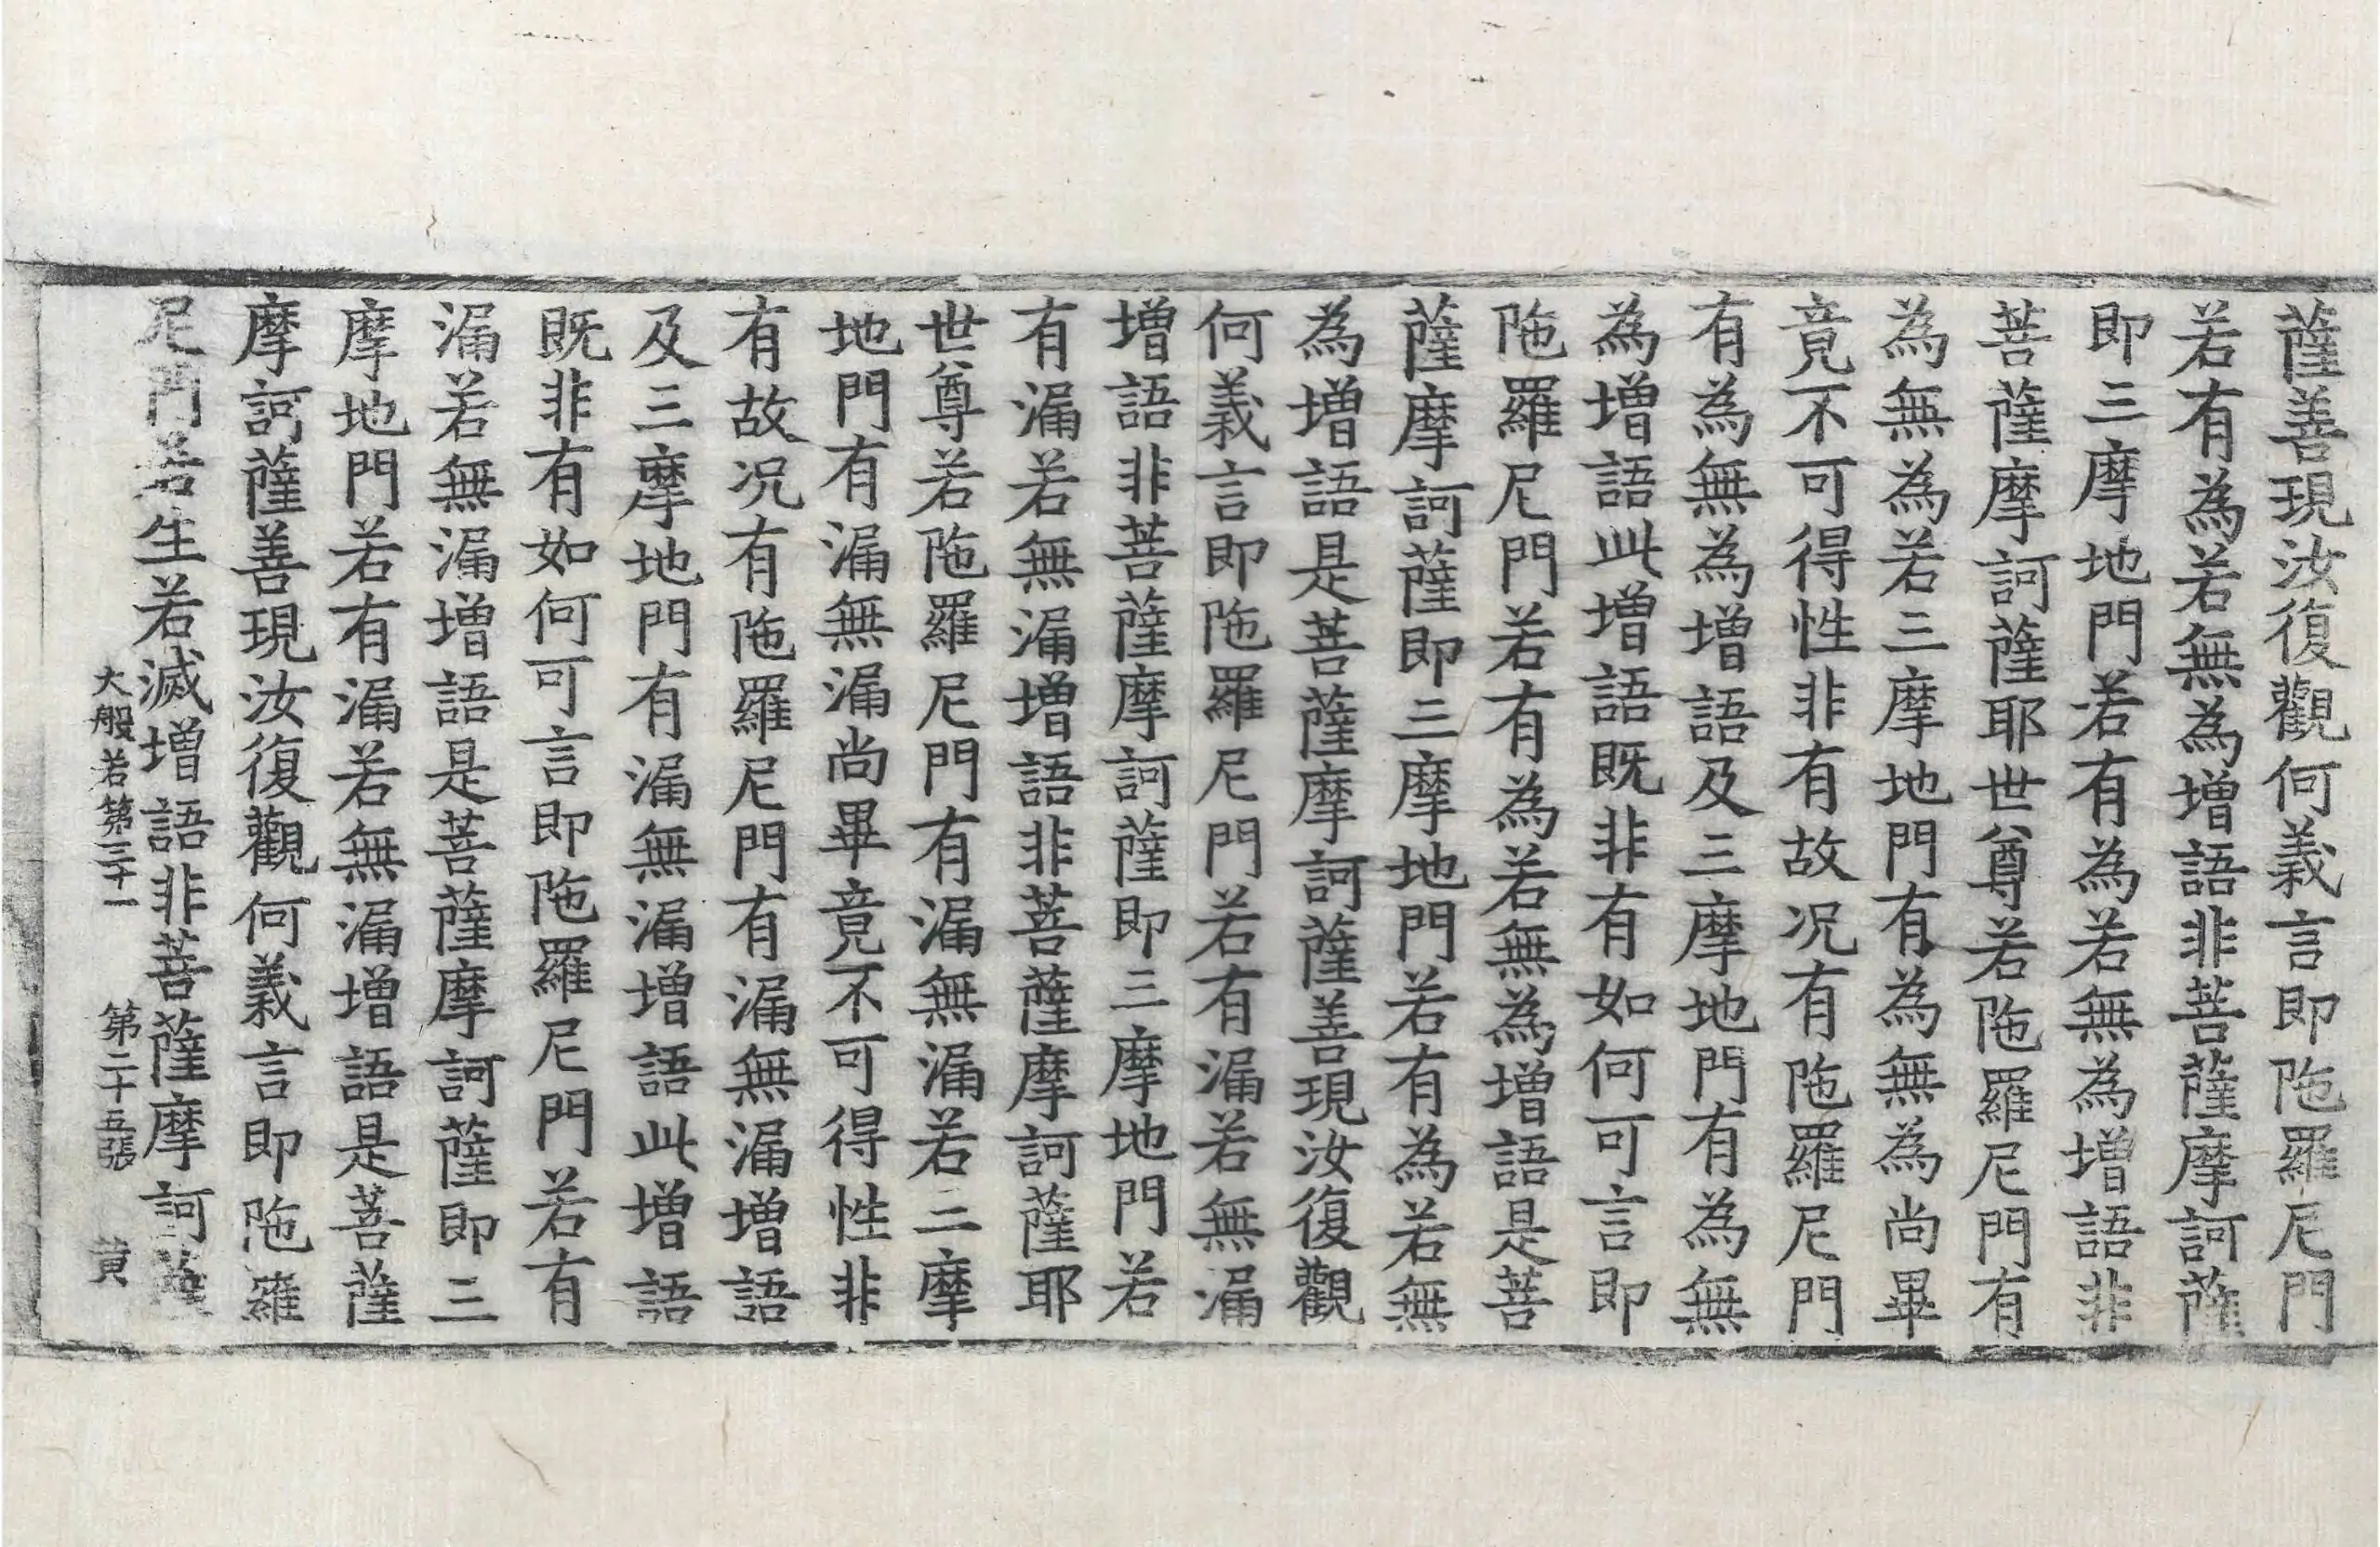 薩善現汝復觀何義言即陁羅尼門
若有為若無為增語非菩薩摩訶薩
即三摩地門若有為若無為增語非
菩薩摩訶薩耶世尊若陁羅尼門有
為無為若三摩地門有為無為尚畢
竟不可得性非有故况有陁羅尼門
有為無為增語及三摩地門有為無
為增語此增語既非有如何可言即
陁羅尼門若有為若無為增語是菩
薩摩訶薩即三摩地門若有為若無
為增語是菩薩摩訶薩善現汝復觀
何義言即陁羅尼門若有漏若無漏
增語非菩薩摩訶薩即三摩地門若
有漏若無漏增語非菩薩摩訶薩耶
世尊若陁羅尼門有漏無漏若三摩
地門有漏無漏尚畢竟不可得性非
有故况有陁羅尼門有漏無漏增語
及三摩地門有漏無漏增語此增語
既非有如何可言即陁羅尼門若有
漏若無漏增語是菩薩摩訶薩即三
摩地門若有漏若無漏增語是菩薩
摩訶薩善現汝復觀何義言即陁羅
尼門若生若滅增語非菩薩摩訶薩
大般若第三十一 第二十五張 黄